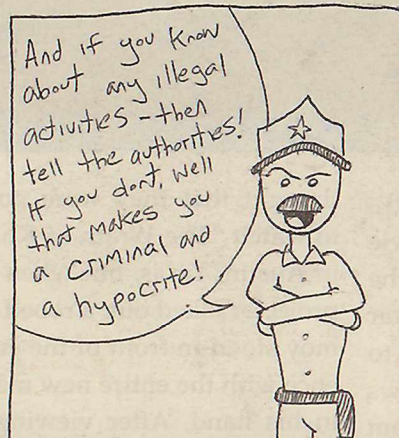 And if you know
about any illegal
activities - then
tell the authorities!
If you dont, well
that makes you
a criminal and
a hypocrite!